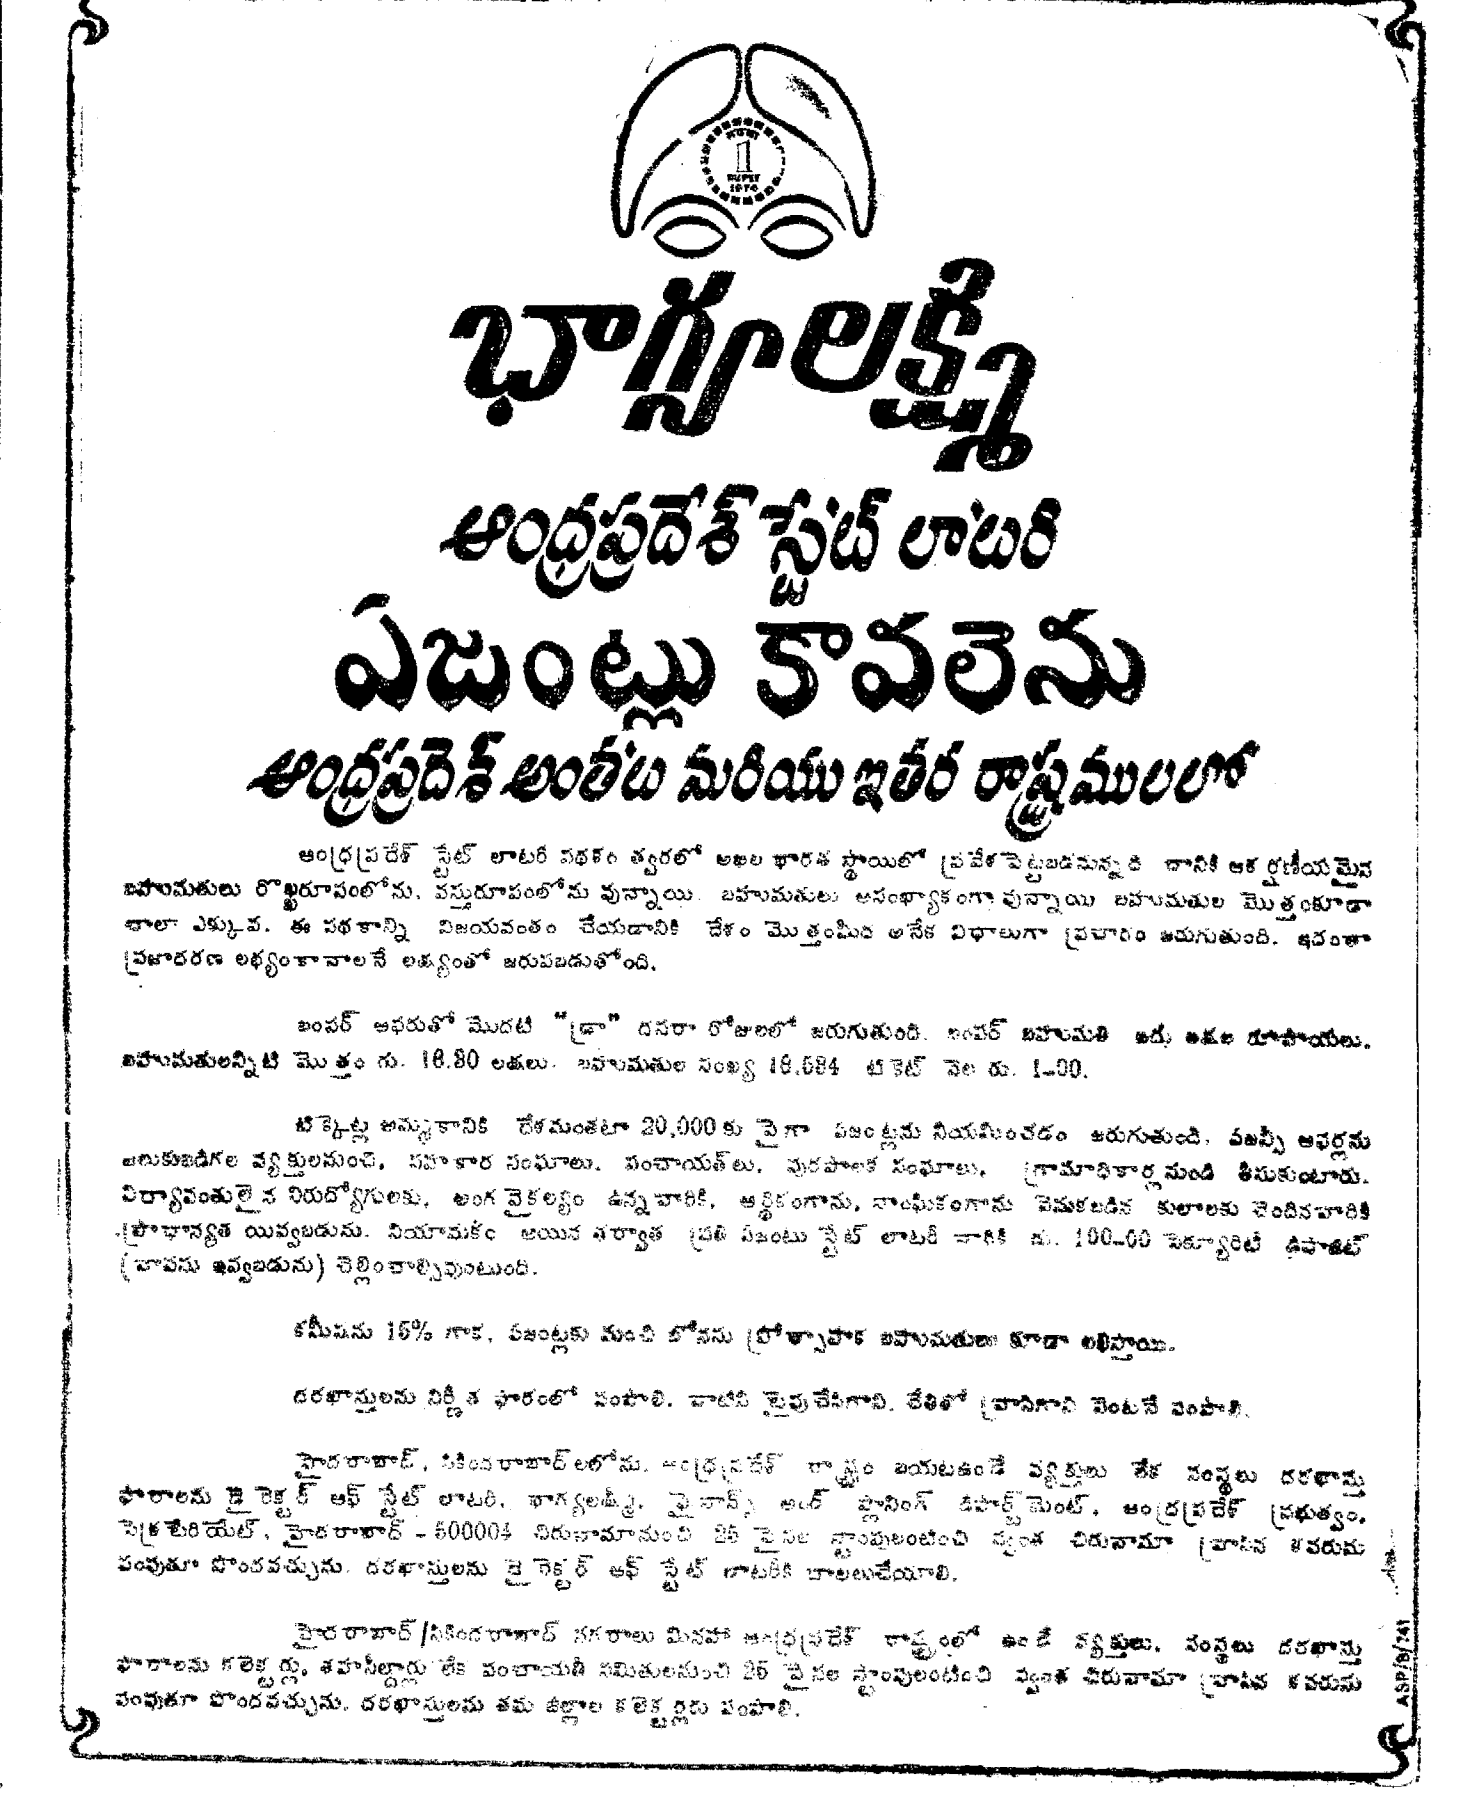 1
RUPEE
భాగ్యలక్ష్మి
ఆంధ్రప్రదేశ్ స్టేట్ లాటరి
ఏజంట్లు కావలెను
ఆంధ్రప్రదేశ్ అంతట మరియు ఇతర రాష్ట్రములలో
ఆంధ్రప్రదేశ్ స్టేట్ లాటరీ పథకం త్వరలో అఖిల భారత స్థాయిలో ప్రవేశపెట్టబడనున్నది దానికి ఆకర్షణీయమైన
బహుమతులు రొఖ్ఖరూపంలోను, వస్తురూపంలోను వున్నాయి. బహుమతులు అసంఖ్యాకంగా వున్నాయి బహుమతుల మొత్తంకూడా
చాలా ఎక్కువ. ఈ పథకాన్ని విజయవంతం చేయడానికి దేశం మొత్తంమీద అనేక విధాలుగా ప్రచారం జరుగుతుంది. ఇదంతా
ప్రజాదరణ లభ్యంకావాలనే లక్ష్యంతో జరుపబడుతోంది.
బంపర్ ఆఫరుతో మొదటి "డ్రా" దసరా రోజులలో జరుగుతుంది. బంపర్ బహుమతి ఐదు లక్షల రూపాయలు.
బహుమతులన్నిటి మొత్తం రు. 18.80 లక్షలు. బహుమతుల సంఖ్య 18,684 టికెట్ వెల రు. 1-00.
టిక్కెట్ల అమ్మకానికి దేశమంతటా 20,000కు పైగా ఏజంట్లను నియమించడం జరుగుతుంది. ఏజన్సీ ఆఫర్లను
జలుకుబడిగల వ్యక్తులనుంచి, సహకార సంఘాలు, పంచాయత్‌లు, పురపాలక సంఘాలు, గ్రామాధికార్లనుండి తీసుకుంటారు.
విద్యావంతులైన నిరుద్యోగులకు, అంగవైకల్యం ఉన్నవారికి, ఆర్థికంగాను, సాంఘికంగాను వెనుకబడిన కులాలకు చెందినవారికి
ప్రాధాన్యత యివ్వబడును. నియామకం అయిన తర్వాత ప్రతి ఏజంటు స్టేట్ లాటరీ వారికి రు. 100-00 సెక్యూరిటీ డిపాజిట్
(వాపసు ఇవ్వబడును) చెల్లించాల్సివుంటుంది.
కమీషను 15% గాక, ఏజంట్లకు మంచి బోనసు ప్రోత్సాహక బహుమతులు కూడా లభిస్తాయి.
దరఖాస్తులను నిర్ణీత ఫారంలో పంపాలి. వాటిని టైపుచేసిగాని, చేతితో వ్రాసిగాని వెంటనే పంపాలి.
హైదరాబాద్, సికింద్రాబాద్‌లలోను, ఆంధ్రప్రదేశ్ రాష్ట్రం బయటఉండే వ్యక్తులు లేక సంస్థలు దరఖాస్తు
ఫారాలను డైరెక్టర్ ఆఫ్ స్టేట్ లాటరీ, భాగ్యలక్ష్మి, ఫైనాన్స్ అండ్ ప్లానింగ్ డిపార్ట్‌మెంట్, ఆంధ్రప్రదేశ్ ప్రభుత్వం,
సెక్రటేరియేట్, హైదరాబాద్ - 500004 చిరునామానుంచి 25 పైసల స్టాంపులంటించి స్వంత చిరునామా వ్రాసిన కవరును
పంపుతూ పొందవచ్చును. దరఖాస్తులను డైరెక్టర్ ఆఫ్ స్టేట్ లాటరీకి దాఖలుచేయాలి.
హైదరాబాద్/సికింద్రాబాద్ నగరాలు మినహా ఆంధ్రప్రదేశ్ రాష్ట్రంలో ఉండే వ్యక్తులు, సంస్థలు దరఖాస్తు
ఫారాలను కలెక్టర్లు, తహసీల్దార్లు లేక పంచాయతీ సమితులనుంచి 25 పైసల స్టాంపులంటించి స్వంత చిరునామా వ్రాసిన కవరును
పంపుతూ పొందవచ్చును. దరఖాస్తులను తమ జిల్లాల కలెక్టర్లకు పంపాలి.
ASP/B/741